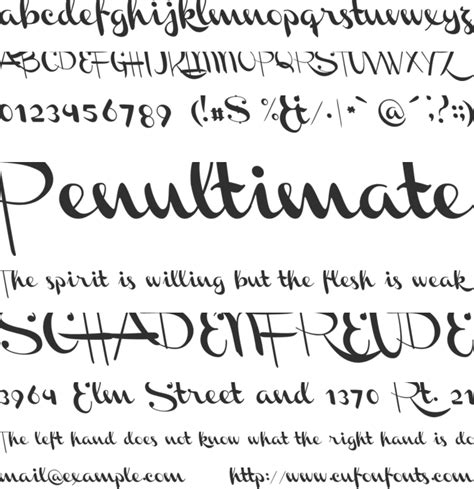 abcdefghijklmnopqrstuvwxyz
ABCDEFGHIJKLMNOPQRSTUVWXYZ
0123456789 (!#$ %&/·|*`´@˝¸:?;:)
Penultimate
The spirit is willing but the flesh is weak
SCHADENFREUDE
3964 Elm Street and 1370 Rt. 21
The left hand does not know what the right hand is do
mail@example.com http://www.cufonfonts.com